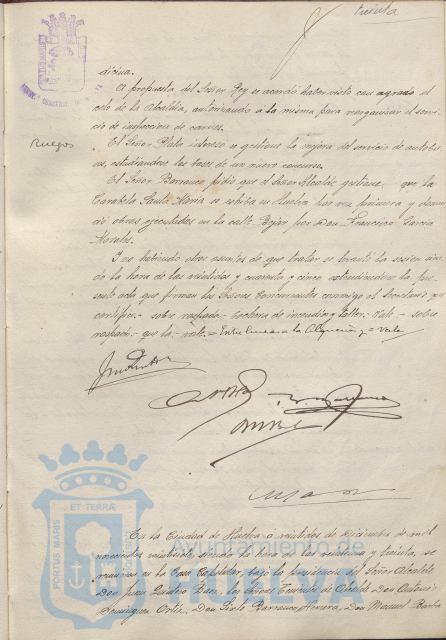 treinta
dicina.
A propuesta del Señor Rey se acordó haber visto con agrado el
celo de la Alcaldía, autorizando a la misma para reorganizar el servi-
cio de inspección de carnes.
Ruegos
El Señor Plata interesó se gestione la mejora del servicio de autobu-
ses, estudiándose las bases de un nuevo concurso.
El Señor Barranco pidió que el Señor Alcalde gestione que la
Carabela Santa María se exhiba en Huelva por vez primera y denun-
ció obras ejecutadas en la calle Béjar por Don Francisco García
Morales.
Y no habiendo otros asuntos de que tratar se levantó la sesión sien-
do la hora de las veintidós y cuarenta y cinco extendiéndose la pre-
sente acta que firman los Señores Concurrentes conmigo el Secretario que
certifico.- sobre raspado - sectores de incendios y taller.- Vale.- sobre
raspado.- que la.- vale.= Entre líneas = a la =vale
ET TERRÆ
PORTUS MARIS
Ayuntamiento de
HUELVA
En la Ciudad de Huelva a veintidós de Diciembre de mil
novecientos veintisiete, siendo la hora de las veintiuna y treinta, se
reunieron en la Casa Capitular, bajo la Presidencia del Señor Alcalde
Don Juan Quintero Báez, los Señores Tenientes de Alcalde Don Antonio
Domínguez Ortiz, Don Pablo Barranco Herrera, Don Manuel